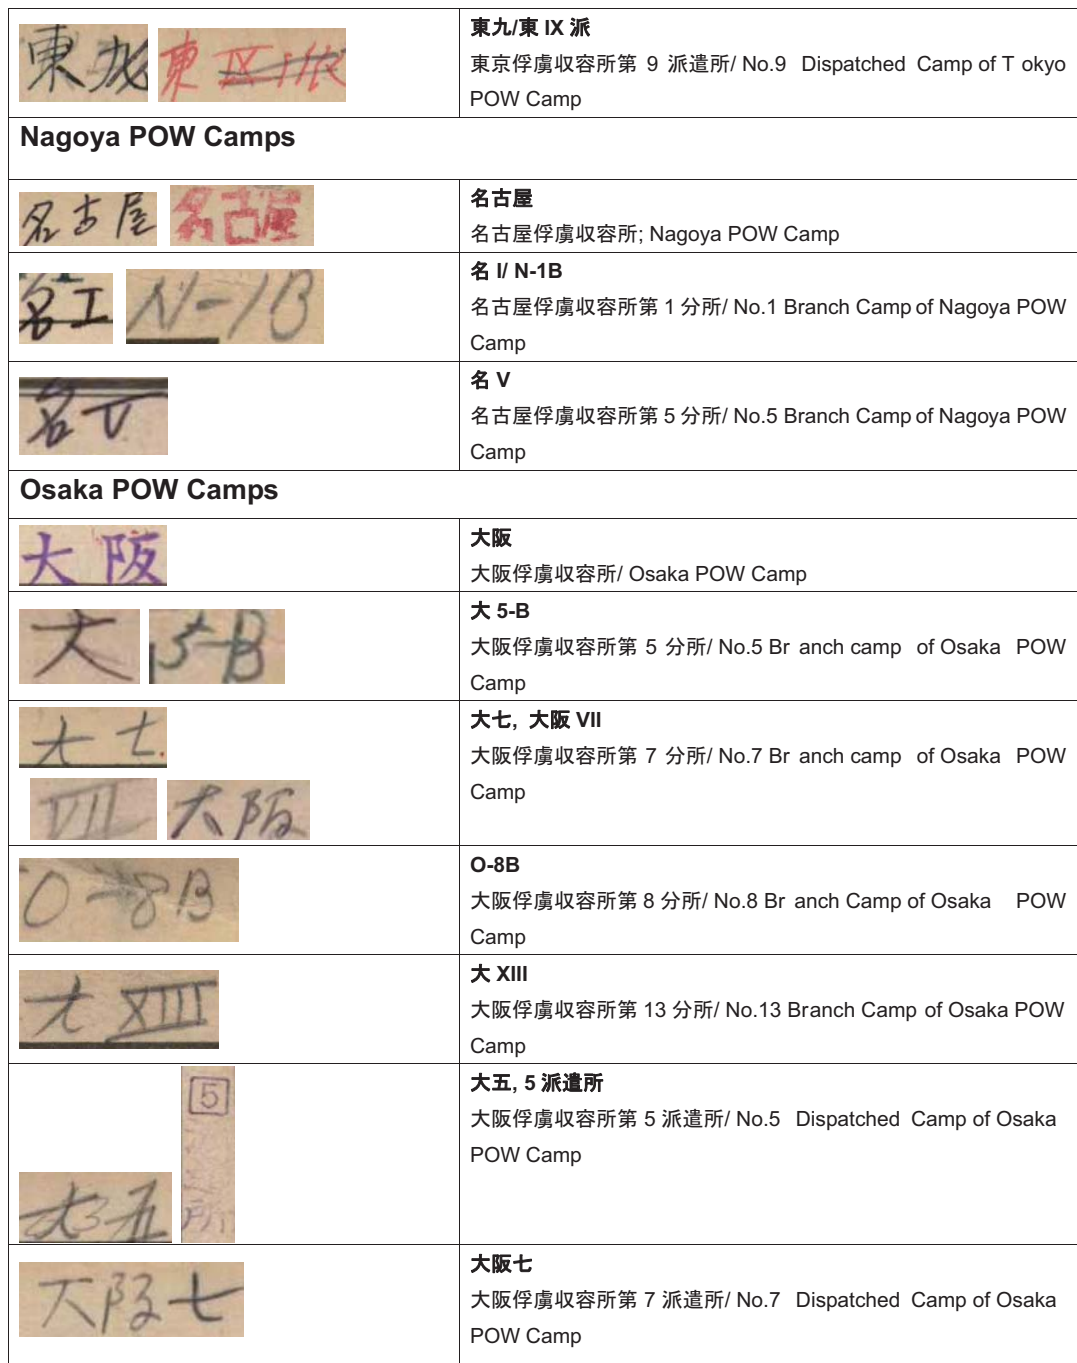 東九 東IX派
東九/東 IX 派
東京俘虜収容所第 9 派遣所/ No.9 Dispatched Camp of T okyo
POW Camp
Nagoya POW Camps
名古屋 名古屋
名古屋
名古屋俘虜収容所; Nagoya POW Camp
名I N-1B
名 I/ N-1B
名古屋俘虜収容所第 1 分所/ No.1 Branch Camp of Nagoya POW
Camp
名V
名 V
名古屋俘虜収容所第 5 分所/ No.5 Branch Camp of Nagoya POW
Camp
Osaka POW Camps
大阪
大阪
大阪俘虜収容所/ Osaka POW Camp
大 5-B
大 5-B
大阪俘虜収容所第 5 分所/ No.5 Br anch camp of Osaka POW
Camp
大七
VII 大阪
大七, 大阪 VII
大阪俘虜収容所第 7 分所/ No.7 Br anch camp of Osaka POW
Camp
O-8B
O-8B
大阪俘虜収容所第 8 分所/ No.8 Br anch Camp of Osaka POW
Camp
大XIII
大 XIII
大阪俘虜収容所第 13 分所/ No.13 Branch Camp of Osaka POW
Camp
大五
5 派遣所
大五, 5 派遣所
大阪俘虜収容所第 5 派遣所/ No.5 Dispatched Camp of Osaka
POW Camp
大阪七
大阪七
大阪俘虜収容所第 7 派遣所/ No.7 Dispatched Camp of Osaka
POW Camp